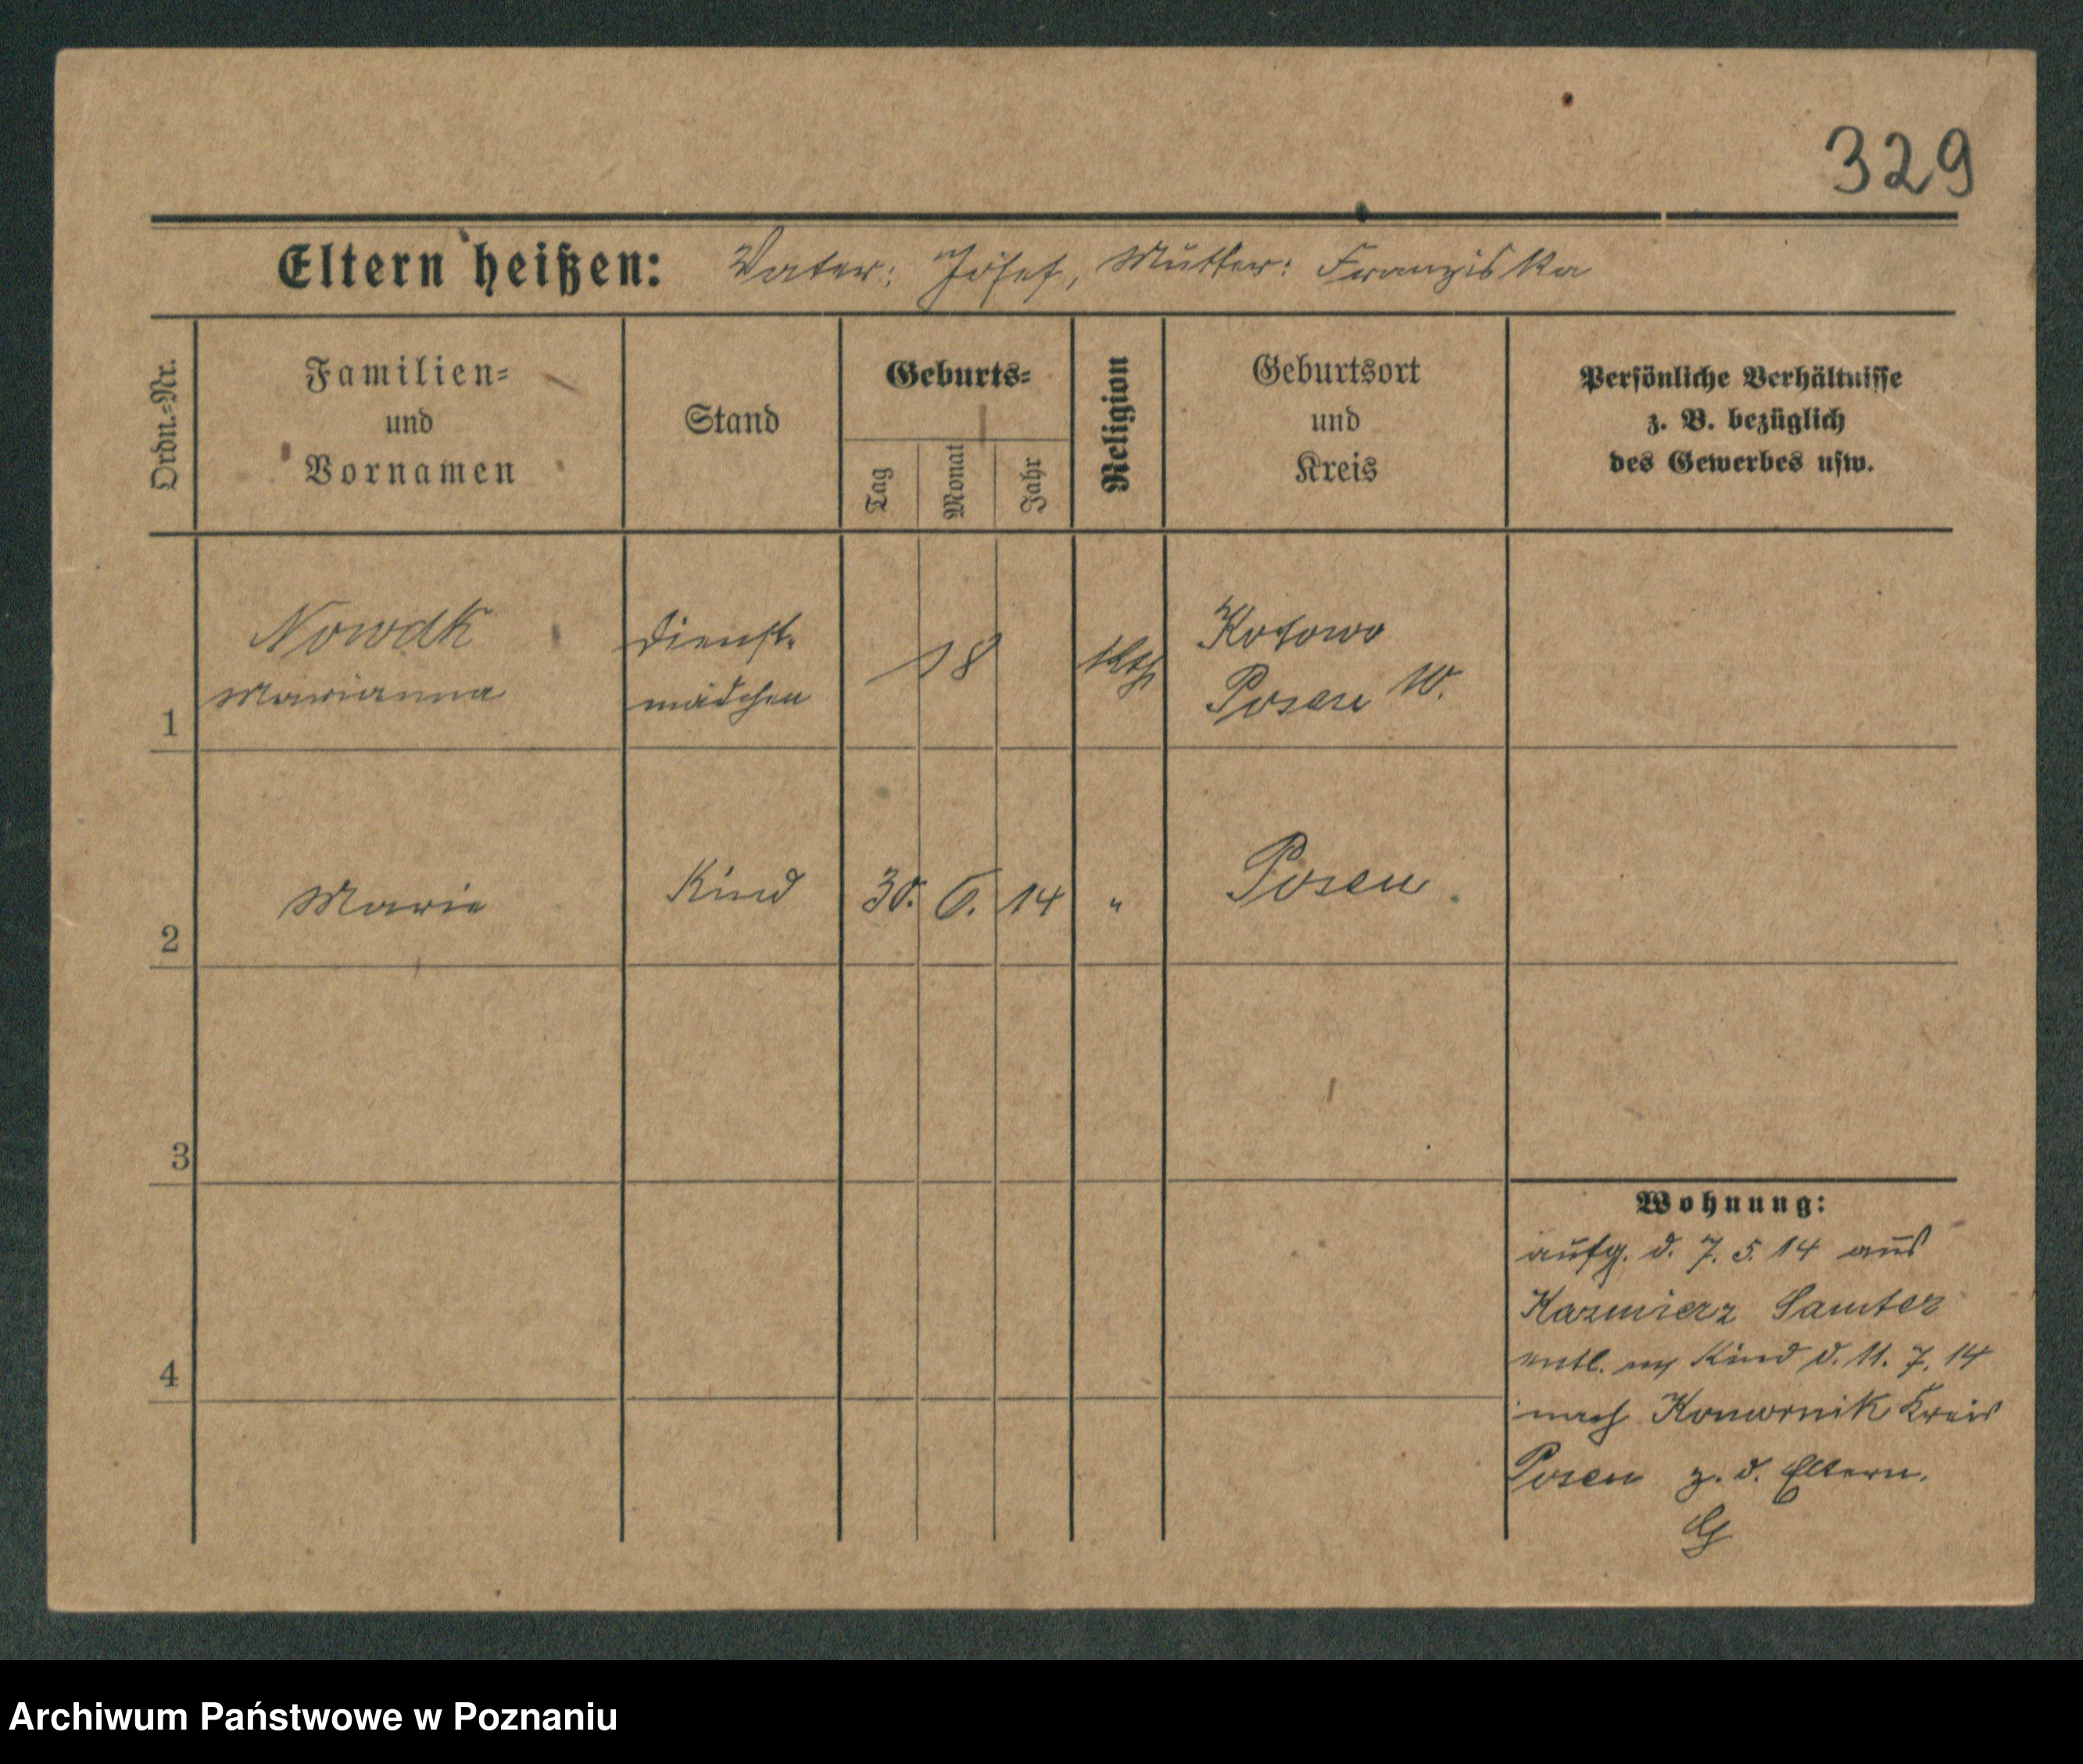 329
Eltern heißen: Vater: Josef, Mutter: Franziska
Ordn.-Nr.
Familien-
und
Vornamen
Stand
Geburts-
Tag
Monat
Jahr
Religion
Geburtsort
und
Kreis
Persönliche Verhältnisse
z. B. bezüglich
des Gewerbes usw.
1
Nowak
Marianna
Dienst-
mädchen
18
Kth
Kotowo
Posen W.
2
Marie
Kind
30. 6. 14
"
Posen.
3
4
Wohnung:
aufg. d. 7. 5. 14 aus
Kazmierz Samter
entl. Kind d. 11. 7. 14
nach Komornik Kreis
Posen z. d. Eltern.
Archiwum Państwowe w Poznaniu